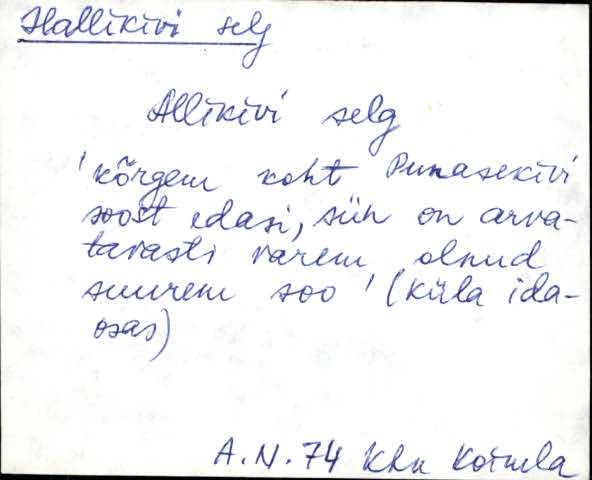 Hallikivi selg
Allikivi selg
'kõrgem koht Punasekivi
soost edasi, siin on arva-
tavasti varem olnud
suurem soo' (küla ida-
osas)
A.N.74 Khn